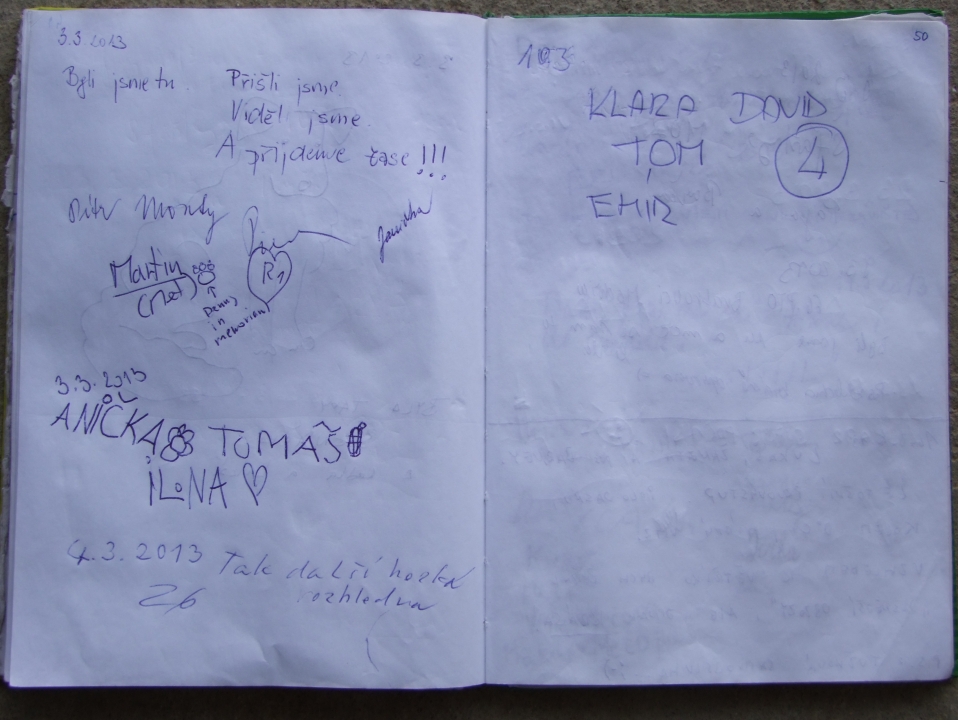 3.3.2013
Byli jsme tu. Přišli jsme.
Viděl jsme.
A přijdeme zase !!!
Martin
R1
Denny
in
memoriam
3.3.2013
ANIČKA TOMÁŠ
ILONA
4.3.2013 Tak další hezká
rozhledna
26
50
103
KLARA DAVID
TOM 4
EMIR